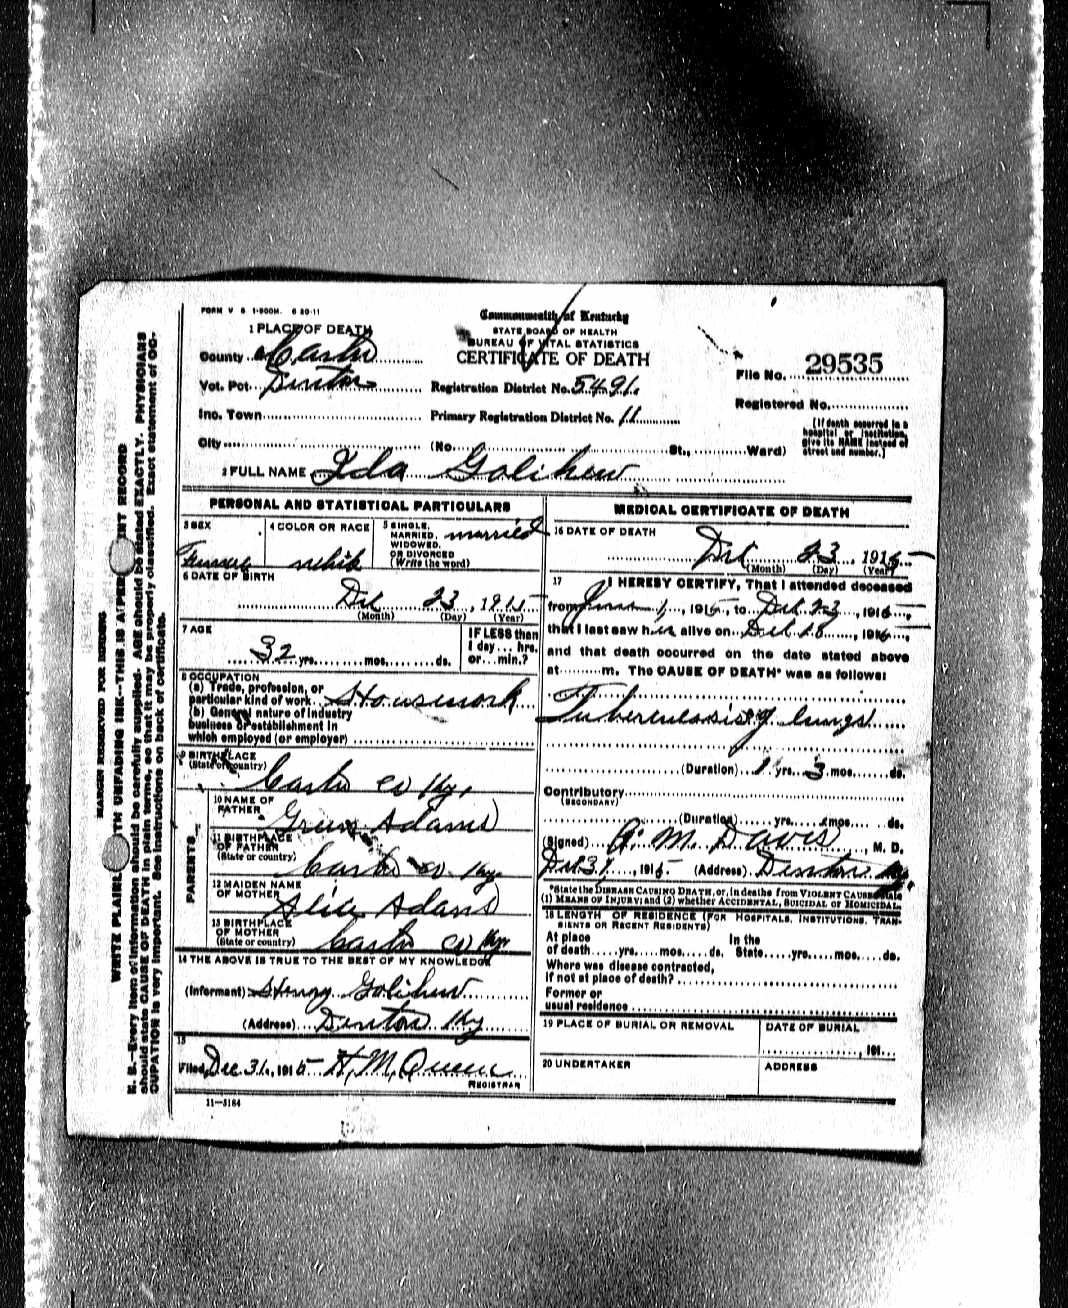 FORM V S 1-500M. 6 20-11
Commonwealth of Kentucky
STATE BOARD OF HEALTH
BUREAU OF VITAL STATISTICS
CERTIFICATE OF DEATH
1 PLACE OF DEATH
County Carter
Vot. Pct. Denton
Registration District No. 5491.
File No. 29535
Inc. Town
Primary Registration District No. 11
Registered No.
City
(No. St., Ward)
[If death occurred in a
hospital or institution,
give its NAME instead of
street and number.]
2 FULL NAME Ida Golihew
PERSONAL AND STATISTICAL PARTICULARS
3 SEX
Female
4 COLOR OR RACE
white
5 SINGLE,
MARRIED,
WIDOWED,
OR DIVORCED
(Write the word)
married
6 DATE OF BIRTH
Dec 23, 1915
(Month) (Day) (Year)
7 AGE
32 yrs. mos. ds.
IF LESS than
1 day ... hrs.
or ... min.?
8 OCCUPATION
(a) Trade, profession, or
particular kind of work Housework
(b) General nature of industry
business or establishment in
which employed (or employer)
9 BIRTHPLACE
(State or country)
Carter co Ky.
PARENTS
10 NAME OF
FATHER
Adams
11 BIRTHPLACE
OF FATHER
(State or country)
Carter co Ky
12 MAIDEN NAME
OF MOTHER
Alice Adams
13 BIRTHPLACE
OF MOTHER
(State or country)
Carter co Ky
14 THE ABOVE IS TRUE TO THE BEST OF MY KNOWLEDGE
(Informant) Henry Golihew
(Address) Denton Ky
15
Filed Dec 31, 1915 H. M. Queen
REGISTRAR
11-3184
MEDICAL CERTIFICATE OF DEATH
16 DATE OF DEATH
Dec 23, 1915
(Month) (Day) (Year)
17 I HEREBY CERTIFY, That I attended deceased
from June 1, 1915, to Dec 23, 1915,
that I last saw her alive on Dec 18, 1915,
and that death occurred on the date stated above
at m. The CAUSE OF DEATH* was as follows:
Tuberculosis of lungs
(Duration) 1 yrs. 3 mos. ds.
Contributory
(SECONDARY)
(Duration) yrs. mos. ds.
(Signed) A. M. Davis, M. D.
Dec 31, 1915 (Address) Denton Ky.
*State the DISEASE CAUSING DEATH, or, in deaths from VIOLENT CAUSES state
(1) MEANS OF INJURY; and (2) whether ACCIDENTAL, SUICIDAL or HOMICIDAL.
18 LENGTH OF RESIDENCE (FOR HOSPITALS, INSTITUTIONS, TRAN-
SIENTS OR RECENT RESIDENTS)
At place In the
of death yrs. mos. ds. State yrs. mos. ds.
Where was disease contracted,
if not at place of death?
Former or
usual residence
19 PLACE OF BURIAL OR REMOVAL
DATE OF BURIAL
, 191
20 UNDERTAKER
ADDRESS
MARGIN RESERVED FOR BINDING
WRITE PLAINLY WITH UNFADING INK—THIS IS A PERMANENT RECORD
N. B.—Every item of information should be carefully supplied. AGE should be stated EXACTLY. PHYSICIANS
should state CAUSE OF DEATH in plain terms, so that it may be properly classified. Exact statement of OC-
CUPATION is very important. See instructions on back of certificate.